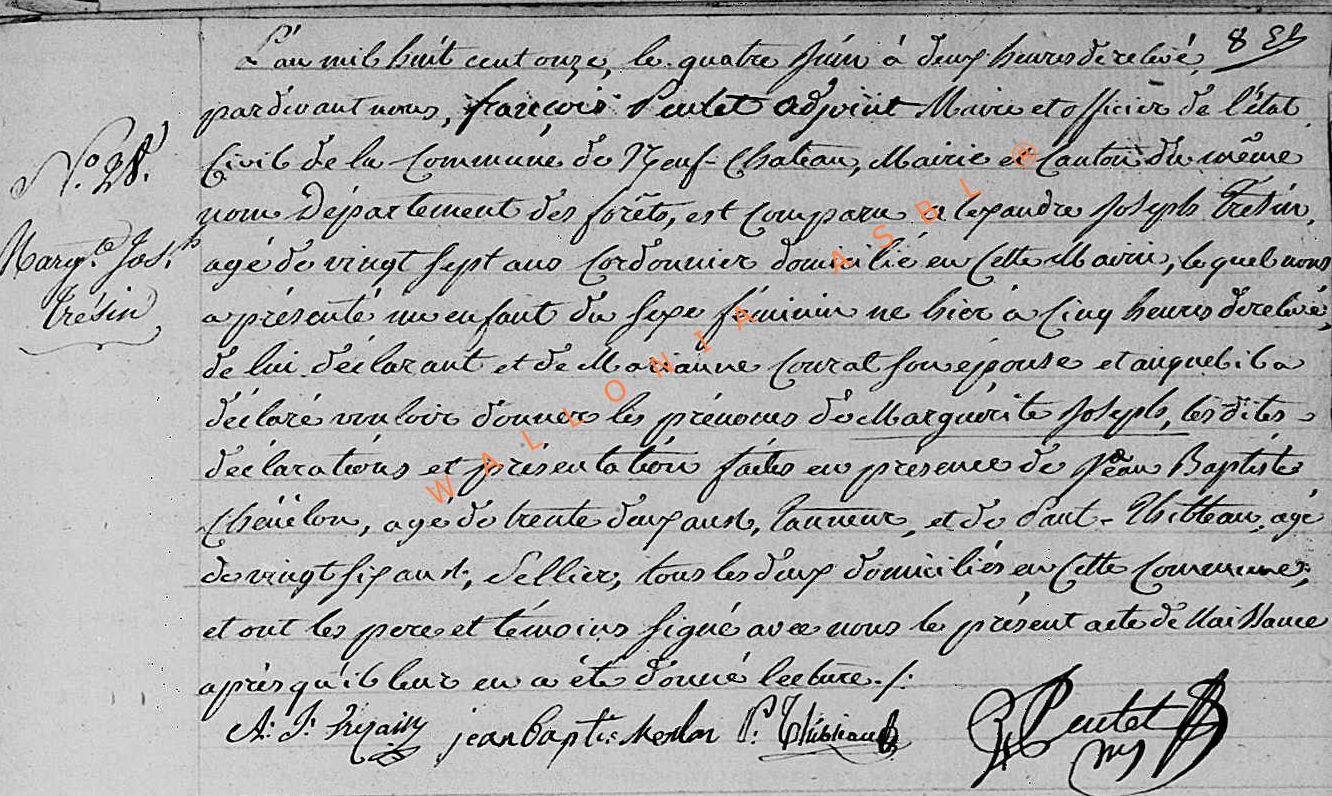 L'an mil huit cent onze, le quatre Juin à deux heures de relevé,
pardevant nous, françois Pentet adjoint Maire et officier de l'état
Civil de la Commune de Neuf-Chateau, Mairie et Canton du même
nom Département des forêts, est comparu alexandre Joseph Trésin,
agé de vingt sept ans Cordonnier domicilié en Cette Mairie, lequel nous
a présenté un enfant du sexe féminin né hier à Cinq heures de relevé,
de lui déclarant et de Marianne son épouse et auquel il a
déclaré vouloir donner les prénoms de Marguérite Joseph, les dites
déclarations et présentation faites en présence de Jean Baptiste
agé de trente deux ans, tanneur, et de agé
de vingt six ans, Sellier, tous les deux domiciliés en Cette Commune;
et ont les pere et témoins signé avec nous le présent acte de Naissance
après qu'il leur en a été donné lecture ./.
N.° 28.
Marg.te Jos.h
Trésin
A: J: jean baptis P. Pentet
WALLONIA ASBL ®